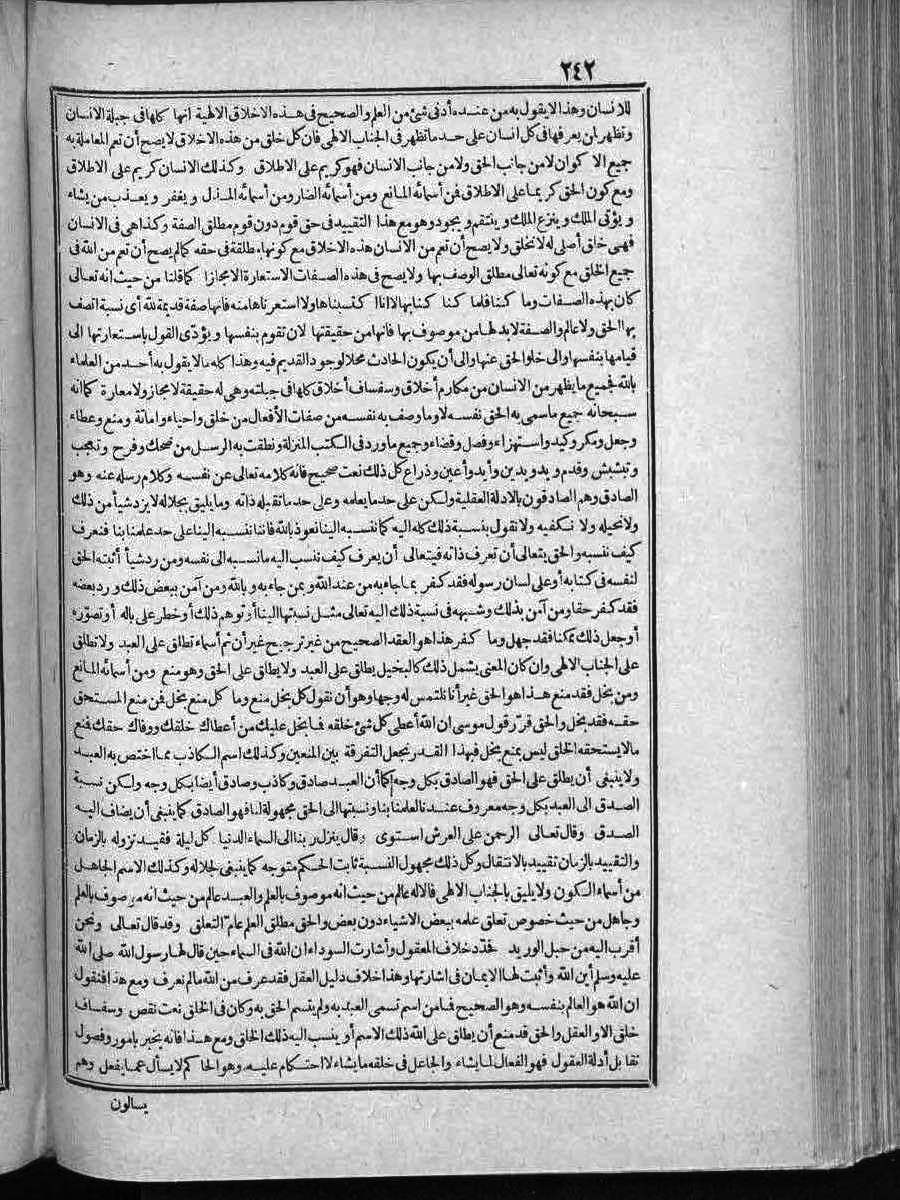 ٢٤٢
للانسان وهذا لا يقول به من عنده أدنى شئ من العلم والصحيح فى هذه الاخلاق الالهية انها كلها فى جبلة الانسان
وتظهر لمن يعرفها فى كل انسان على حد ما تظهر فى الجناب الالهى فان كل خلق من هذه الاخلاق لا يصح أن تعم المعاملة به
جميع الاكوان لا من جانب الحق ولا من جانب الانسان فهو كريم على الاطلاق وكذلك الانسان كريم على الاطلاق
ومع كون الحق كريما على الاطلاق فمن أسمائه المانع ومن أسمائه الضار ومن أسمائه المذل و يغفر و يعذب من يشاء
و يؤتى الملك و ينزع الملك و ينتقم و يجود وهو مع هذا التقييد فى حق قوم دون قوم مطلق الصفة وكذا هى فى الانسان
فهى خلق أصلى له لا تخلق ولا يصح أن تعم من الانسان هذه الاخلاق مع كونها مطلقة فى حقه كما لم يصح أن تعم من الله فى
جميع الخلق مع كونه تعالى مطلق الوصف بها ولا يصح فى هذه الصفات الاستعارة الا مجازا كما قلنا من حيث انه تعالى
كان بهذه الصفات وما كنا فلما كنا كنا بها لا انا اكتسبناها ولا استعرناها منه فانها صفة قديمة لله أى نسبة اتصف
بها الحق ولا عالم والصفة لا بد لها من موصوف بها فانها من حقيقتها لان تقوم بنفسها و يؤدّى القول باستعارتها الى
قيامها بنفسها والى خلو الحق عنها والى أن يكون الحادث محلا لوجود القديم فيه وهذا كله ما لا يقول به أحد من العلماء
بالله فجميع ما يظهر من الانسان من مكارم أخلاق وسفساف أخلاق كلها فى جبلته وهى له حقيقة لا مجاز ولا معارة كما انه
سبحانه جميع ما سمى به الحق نفسه لا وما وصف به نفسه من صفات الأفعال من خلق واحياء واماتة ومنع وعطاء
وجعل ومكر وكيد واستهزاء وفصل وقضاء وجميع ما ورد فى الكتب المنزلة ونطقت به الرسل من ضحك وفرح و تعجب
وتبشبش وقدم و يد و يدين وأيد وأعين وذراع كل ذلك نعت صحيح فانه كلامه تعالى عن نفسه وكلام رسله عنه وهو
الصادق وهم الصادقون بالادلة العقلية ولكن على حد ما يعلمه وعلى حد ما تقبله ذاته وما يليق بجلاله لا يرد شيأ من ذلك
ولا نحيله ولا نكفيه ولا نقول بنسبة ذلك كله اليه كما ننسبه الينا نعوذ بالله فاننا ننسبه الينا على حد علمنا بنا فنعرف
كيف ننسبه والحق يتعالى أن تعرف ذاته فيتعالى أن يعرف كيف ننسب اليه ما نسبه الى نفسه ومن رد شيأ أثبته الحق
لنفسه فى كتابه أو على لسان رسوله فقد كفر بما جاء به من عند الله و بمن جاء به و بالله ومن آمن ببعض ذلك و رد بعضه
فقد كفر حقا ومن آمن بذلك وشبهه فى نسبة ذلك اليه تعالى مثل نسبتها الينا أو توهم ذلك أو خطر على باله أو تصوّره
أو جعل ذلك ممكنا فقد جهل وما كفر هذا هو العقد الصحيح من غير ترجيح غير أن ثم أسماء تطلق على العبد ولا تطلق
على الجناب الالهى وان كان المعنى يشمل ذلك كالبخيل يطلق على العبد ولا يطلق على الحق وهو منع ومن أسمائه المانع
ومن بخل فقد منع هذا هو الحق غير أنا نلتمس له وجها وهو أن نقول كل بخل منع وما كل منع بخل فمن منع المستحق
حقه فقد بخل والحق قرّر قول موسى ان الله أعطى كل شئ خلقه فما بخل عليك من أعطاك خلقك ووفاك حقك فمنع
ما لا يستحقه الخلق ليس بمنع بخل فبهذا القدر نجعل التفرقة بين المنعين وكذلك اسم الكاذب مما اختص به العبد
ولا ينبغى أن يطلق على الحق فهو الصادق بكل وجه كما أن العبد صادق وكاذب وصادق أيضا بكل وجه ولكن نسبة
الصدق الى العبد بكل وجه معروف عندنا لعلمنا بنا ونسبتها الى الحق مجهولة لنا فهو الصادق كما ينبغى أن يضاف اليه
الصدق وقال تعالى الرحمن على العرش استوى وقال ينزل ربنا الى السماء الدنيا كل ليلة فقيد نزوله بالزمان
والتقييد بالزمان تقييد بالانتقال وكل ذلك مجهول النسبة ثابت الحكم متوجه كما ينبغى لجلاله وكذلك الاسم الجاهل
من أسماء الكون ولا يليق بالجناب الالهى فالاله عالم من حيث انه موصوف بالعلم والعبد عالم من حيث انه موصوف بالعلم
وجاهل من حيث خصوص تعلق علمه ببعض الاشياء دون بعض والحق مطلق العلم عامّ التعلق وقد قال تعالى ونحن
أقرب اليه من حبل الوريد فحدّد خلاف المعقول وأشارت السوداء ان الله فى السماء حين قال لها رسول الله صلى الله
عليه وسلم أين الله وأثبت لها الايمان فى اشارتها وهذا خلاف دليل العقل فقد عرف من الله ما لم نعرف ومع هذا فنقول
ان الله هو العالم بنفسه وهو الصحيح فما من اسم تسمى العبد به ولم يتسم الحق به وكان فى الخلق نعت نقص وسفساف
خلق الا والعقل والحق قد منع أن يطلق على الله ذلك الاسم أو ينسب اليه ذلك الخلق ومع هذا فانه يخبر بامور وفصول
تقابل أدلة العقول فهو الفعال لما يشاء والجاعل فى خلقه ما يشاء لا احتكام عليه وهو الحاكم لا يسأل عما يفعل وهم
يسألون